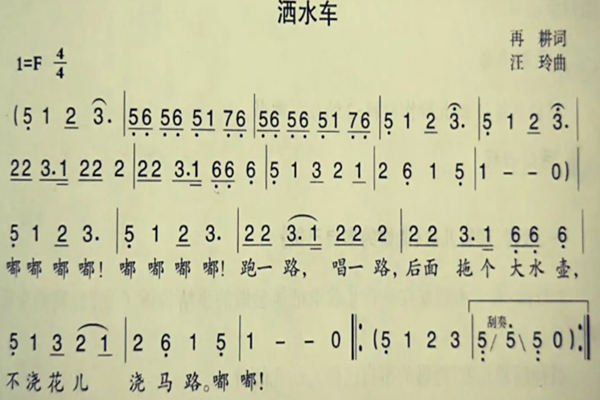 洒水车
再 耕词
1=F 4/4
汪 玲曲
(5 1 2 3. | 56 56 51 76 | 56 56 51 76 | 5 1 2 3. | 5 1 2 3. |
22 3.1 22 2 | 22 3.1 66 6 | 5 1 3 2 1 | 2 6 1 5 | 1 - - 0) |
5 1 2 3. | 5 1 2 3. | 22 3.1 22 2 | 22 3.1 66 6 |
嘟嘟嘟嘟! 嘟嘟嘟嘟! 跑一路, 唱一路,后面 拖个 大水 壶,
刮奏
5 1 3 2 1 | 2 6 1 5 | 1 - - 0 :(5 1 2 3 | 5/ 5\ 5 0):
不浇花儿 浇马路。嘟嘟!